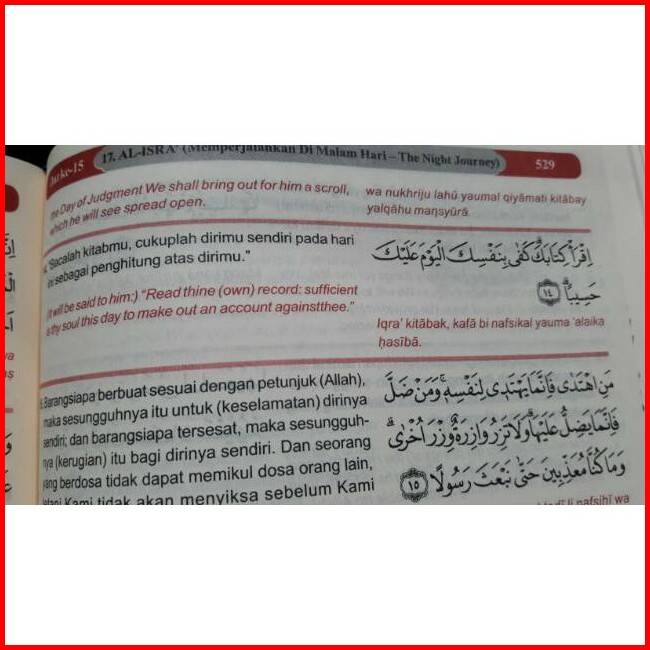 Juz ke-15
17. AL-ISRA' (Memperjalankan Di Malam Hari – The Night Journey)
529
the Day of Judgment We shall bring out for him a scroll,
which he will see spread open.
wa nukhriju lahū yaumal qiyāmati kitābay
yalqāhu maṇsyūrā.
"Bacalah kitabmu, cukuplah dirimu sendiri pada hari
ini sebagai penghitung atas dirimu."
(It will be said to him:) "Read thine (own) record: sufficient
is thy soul this day to make out an account againstthee."
اِقْرَأْ كِتَابَكَۗ كَفٰى بِنَفْسِكَ الْيَوْمَ عَلَيْكَ
حَسِيْبًاۗ ١٤
Iqra' kitābak, kafā bi nafsikal yauma 'alaika
ḥasībā.
Barangsiapa berbuat sesuai dengan petunjuk (Allah),
maka sesungguhnya itu untuk (keselamatan) dirinya
sendiri; dan barangsiapa tersesat, maka sesungguh-
nya (kerugian) itu bagi dirinya sendiri. Dan seorang
yang berdosa tidak dapat memikul dosa orang lain,
tetapi Kami tidak akan menyiksa sebelum Kami
مَنِ اهْتَدٰى فَاِنَّمَا يَهْتَدِيْ لِنَفْسِهٖۚ وَمَنْ ضَلَّ
فَاِنَّمَا يَضِلُّ عَلَيْهَاۗ وَلَا تَزِرُ وَازِرَةٌ وِّزْرَ اُخْرٰىۗ
وَمَا كُنَّا مُعَذِّبِيْنَ حَتّٰى نَبْعَثَ رَسُوْلًا ١٥
li nafsihī wa